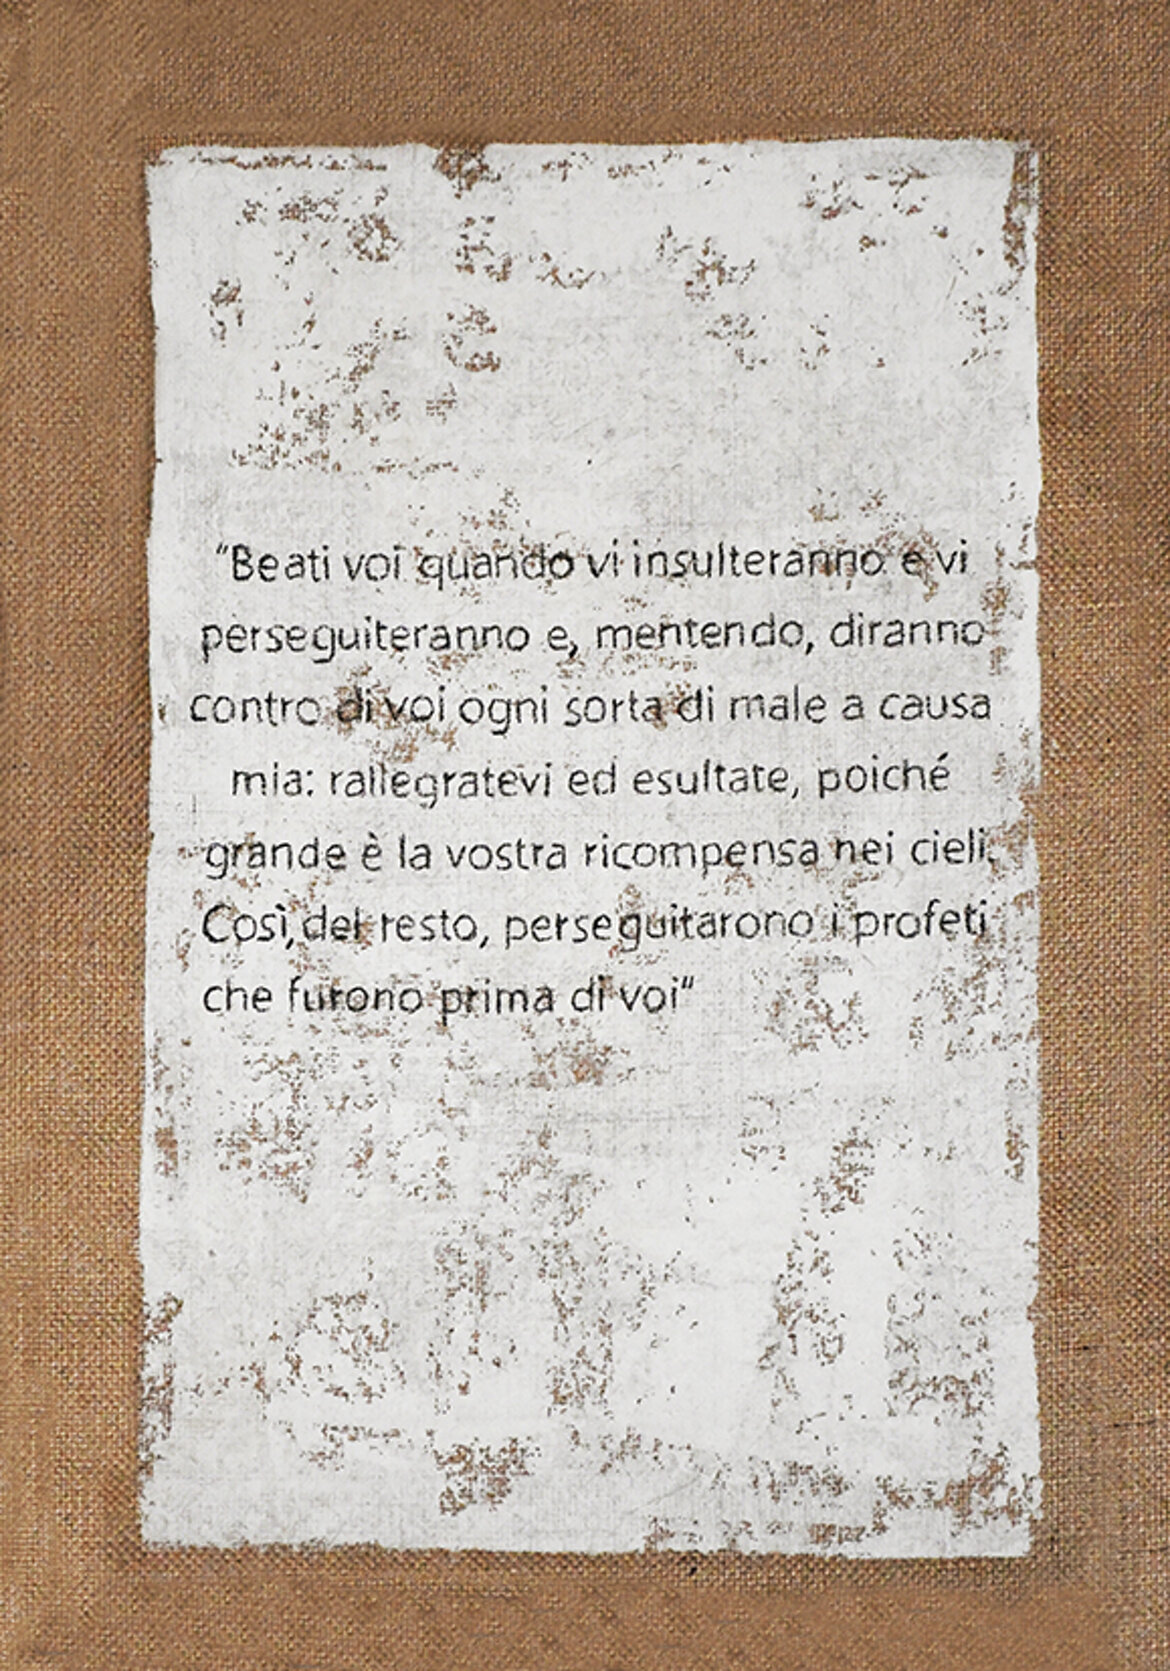 “Beati voi quando vi insulteranno e vi
perseguiteranno e, mentendo, diranno
contro di voi ogni sorta di male a causa
mia: rallegratevi ed esultate, poiché
grande è la vostra ricompensa nei cieli.
Così, del resto, perseguitarono i profeti
che furono prima di voi“